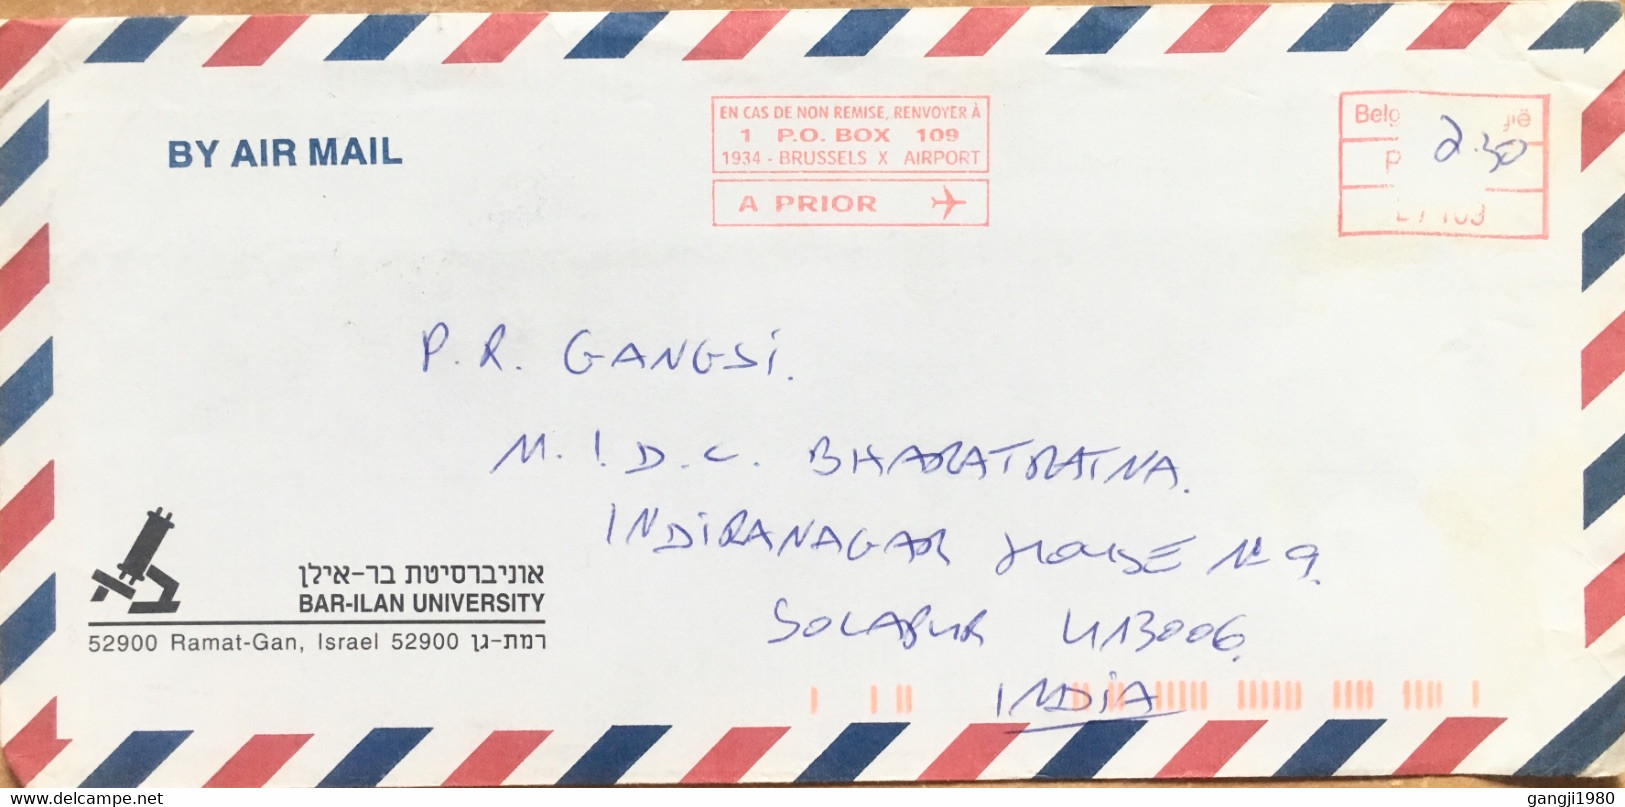 BY AIR MAIL
EN CAS DE NON REMISE, RENVOYER À
1 P.O. BOX 109
1934 - BRUSSELS X AIRPORT
A PRIOR
Belg gië
2.30
P
P. R. GANGSI.
M. I. D. C. BHARATRATNA.
INDIRANAGAR HOUSE N° 9.
SOLAPUR 413006.
INDIA
אוניברסיטת בר-אילן
BAR-ILAN UNIVERSITY
52900 Ramat-Gan, Israel 52900 רמת-גן
delcampe.net
gangji1980